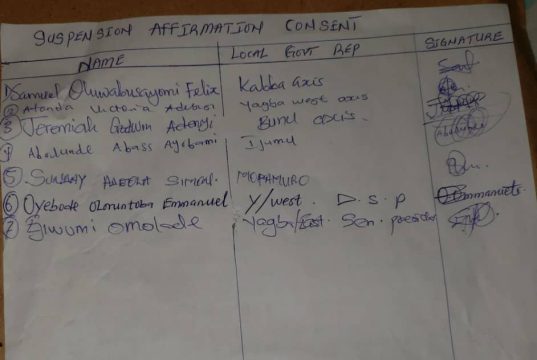 SUSPENSION AFFIRMATION CONSENT
NAME LOCAL GOVT REP SIGNATURE
1) Samuel Oluwabusayomi Felix Kabba axis
2 Atanda Victoria Adebusi Yagba west axis
3 Jeremiah Godwin Adeniyi Bunu axis.
4 Abodunde Abass Ayobami Ijumu
5 SUNDAY SIMEON. MOPAMURO
6 Oyebode Oloruntoba Emmanuel Y/west. D.S.P Emmanuel
7 Ejiwumi omolade Yagba/East. Sen. president